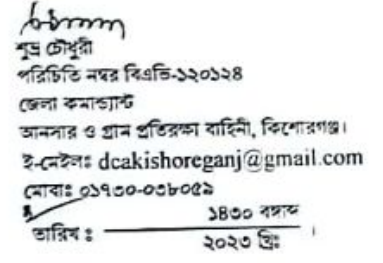 শুভ্র চৌধুরী
পরিচিতি নম্বর বিএভি-১২০১২৪
জেলা কমান্ড্যান্ট
আনসার ও গ্রাম প্রতিরক্ষা বাহিনী, কিশোরগঞ্জ।
ই-মেইলঃ dcakishoreganj@gmail.com
মোবাঃ ০১৭৩০-০৩৮০৫৯
১৪৩০ বঙ্গাব্দ
তারিখ ঃ ।
২০২৩ খ্রিঃ